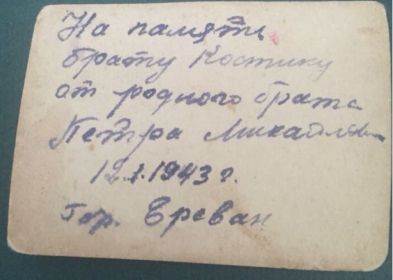 На память
брату Костику
от родного брата
Петра
12.1.1943 г.
гор. Ереван